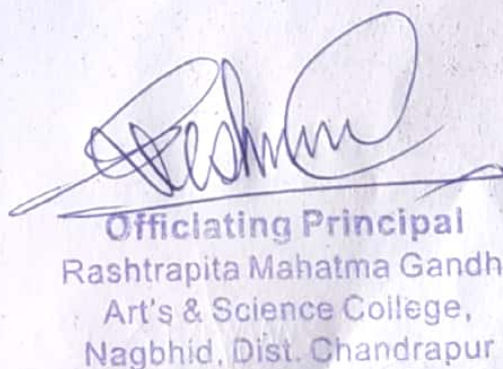 Officiating Principal
Rashtrapita Mahatma Gandh
Art's & Science College,
Nagbhid, Dist. Chandrapur